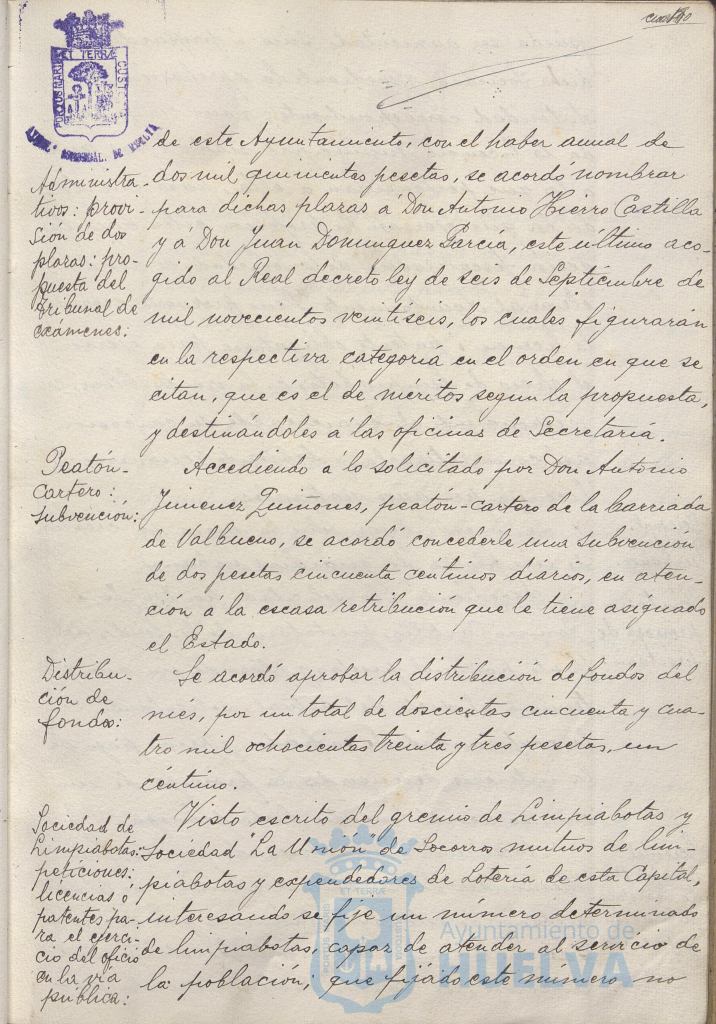 cuatro
PORTUS MARIS ET TERRÆ CUSTODIA
de este Ayuntamiento, con el haber anual de
dos mil quinientas pesetas, se acordó nombrar
para dichas plazas á Don Antonio Hierro Castilla
y á Don Juan Dominguez García, este último aco-
gido al Real decreto ley de seis de Septiembre de
mil novecientos veintiseis, los cuales figurarán
en la respectiva categoría en el orden en que se
citan, que és el de méritos según la propuesta,
y destinándoles á las oficinas de Secretaría.
Administra-
tivos: provi-
sión de dos
plazas: pro-
puesta del
tribunal de
exámenes:
Peatón-
cartero:
subvención:
Accediendo á lo solicitado por Don Antonio
Jimenez Quiñones, peatón-cartero de la barriada
de Valbueno, se acordó concederle una subvención
de dos pesetas cincuenta céntimos diarios, en aten-
ción á la escasa retribución que le tiene asignado
el Estado.
Distribu-
ción de
fondos:
Se acordó aprobar la distribución de fondos del
més, por un total de doscientas cincuenta y cua-
tro mil ochocientas treinta y trés pesetas, un
céntimo.
Sociedad de
Limpiabotas:
peticiones:
licencias ó
patentes pa-
ra el ejerci-
cio del oficio
en la vía
pública:
Visto escrito del gremio de Limpiabotas y
Sociedad "La Unión" de Socorros mutuos de lim-
piabotas y expendedores de Lotería de esta Capital,
interesando se fije un número determinado
de limpiabotas, capaz de aténder al servicio de
la población; que fijado este número no
Ayuntamiento de
HUELVA